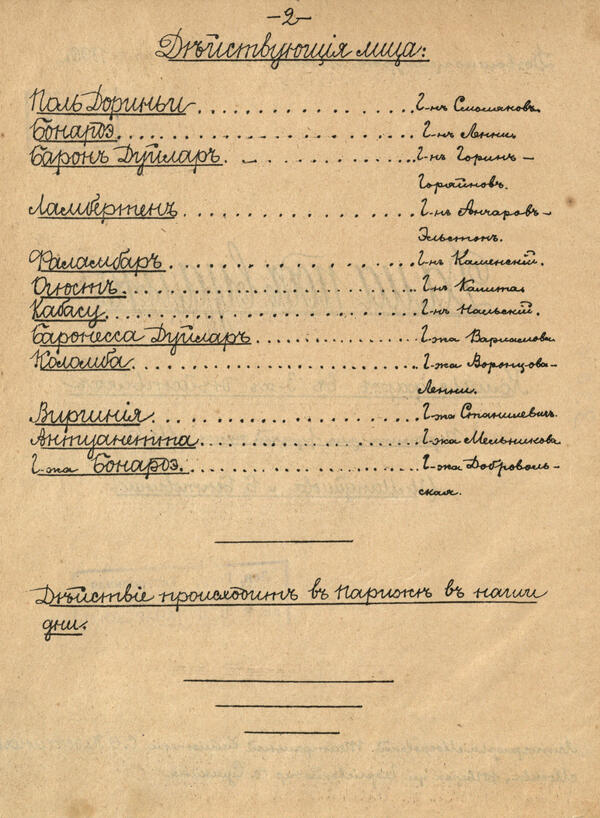 —2—
Дѣйствующія лица:
Поль Дориньи . . . . . . . . . . . . . Г-нъ Смоляковъ.
Бонардэ. . . . . . . . . . . . . . . . . Г-нъ Ленни.
Баронъ Дуйларъ. . . . . . . . . . . Г-нъ Горинъ-
Горяйновъ.
Ламбертенъ . . . . . . . . . . . . . . Г-нъ Анчаровъ-
Эльстонъ.
Фаламбаръ . . . . . . . . . . . . . . Г-нъ Каменскій.
Огюстъ . . . . . . . . . . . . . . . . . Г-нъ Калита.
Кабасу . . . . . . . . . . . . . . . . . Г-нъ Нальскій.
Баронесса Дуйларъ . . . . . . . . . Г-жа Варламова
Коломба . . . . . . . . . . . . . . . . Г-жа Воронцова-
Ленни.
Виргинія . . . . . . . . . . . . . . . . Г-жа
Антуанетта . . . . . . . . . . . . . . Г-жа Мельникова
Г-жа Бонардэ. . . . . . . . . . . . . Г-жа Доброволь-
ская.
Дѣйствіе происходитъ въ Парижѣ въ наши
дни.